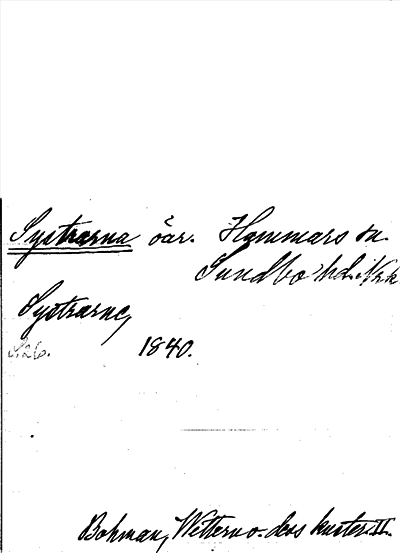 Systrarna öar. Hammars sn.
Sundbo hd. Nrk
Systrarne,
s. 26. 1840.
Bohman, Wettern o. dess kuster. II.